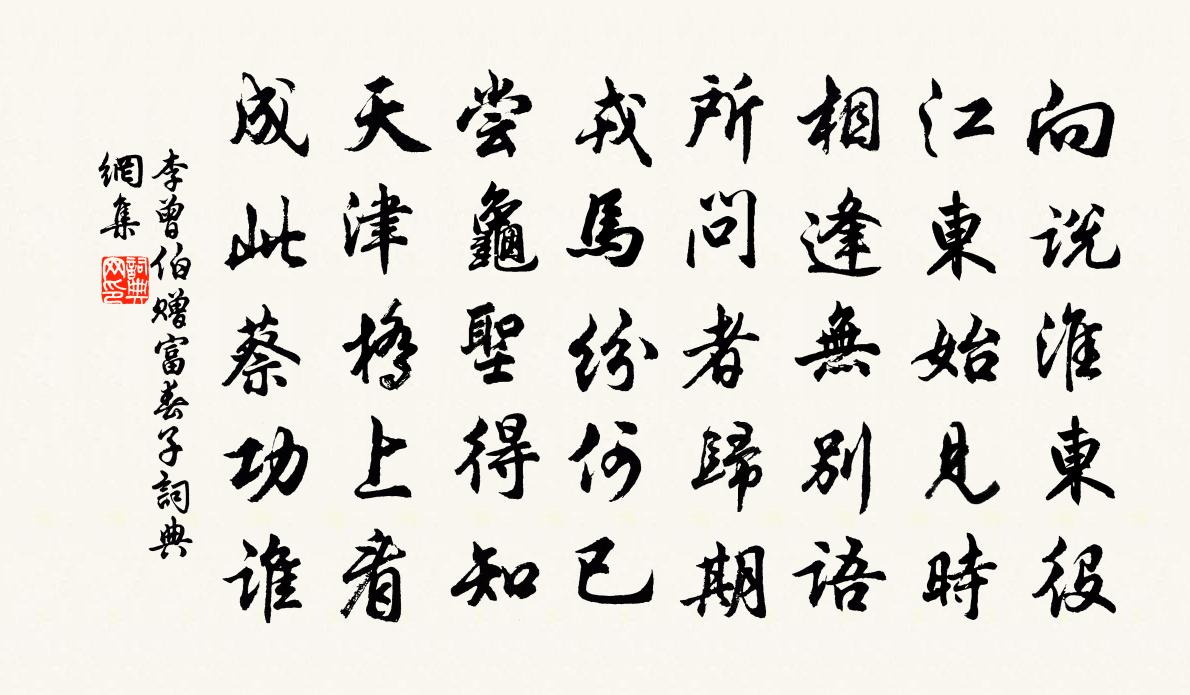 向説淮東役
江東始見時
相逢無別語
所問者歸期
戎馬紛何已
嘗龜聖得知
天津橋上看
成此蔡功誰
李曾伯贈富春子詞典
網集
詞典
网印